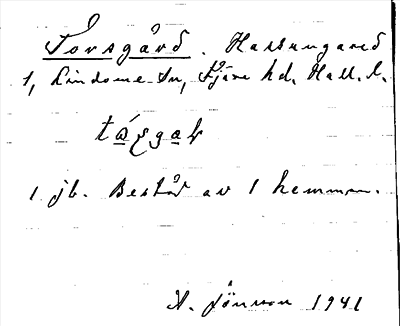 Torsgård. Hassungared
1, Lindome sn, Fjäre hd. Hall. l.
1 jb. Består av 1 hemman.
A. Jönsson 1941